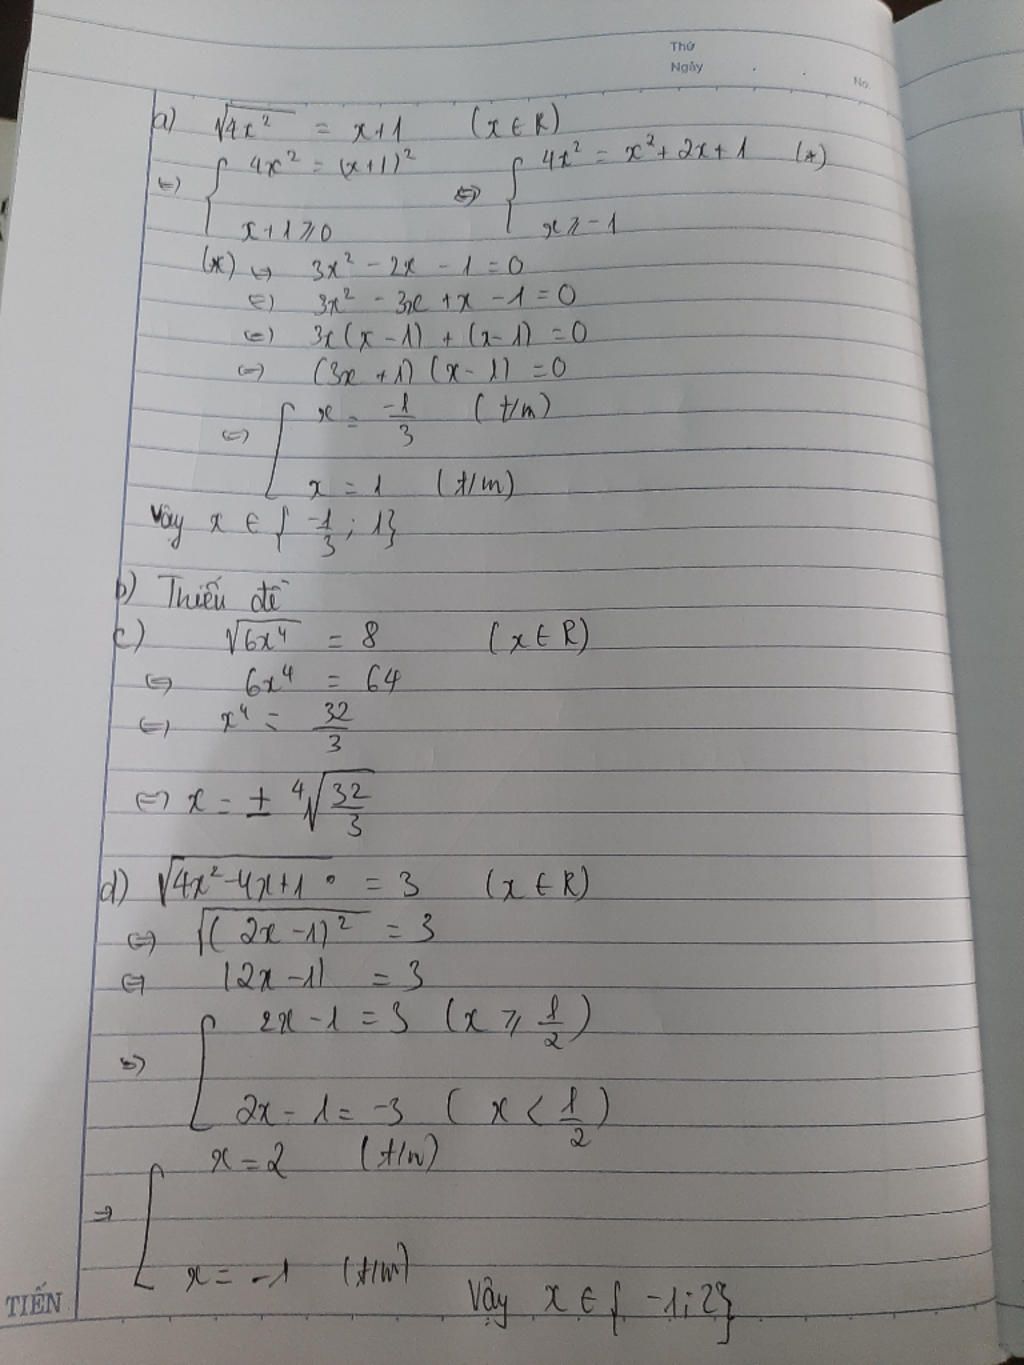 Thứ
Ngày
No.
a) √4x² = x+1 (x ∈ R)
⇔ { 4x² = (x+1)² ⇔ { 4x² = x² + 2x + 1 (*)
x+1 ⩾ 0 x ⩾ -1
(*) ⇔ 3x² - 2x - 1 = 0
⇔ 3x² - 3x + x - 1 = 0
⇔ 3x(x - 1) + (x - 1) = 0
⇔ (3x + 1) (x - 1) = 0
⇔ [ x = -1/3 (t/m)
x = 1 (t/m)
Vậy x ∈ { -1/3 ; 1}
b) Thiếu đề
c) √6x⁴ = 8 (x ∈ R)
⇔ 6x⁴ = 64
⇔ x⁴ = 32/3
⇔ x = ± ⁴√32/3
d) √4x² - 4x + 1 = 3 (x ∈ R)
⇔ √(2x - 1)² = 3
⇔ |2x - 1| = 3
⇔ [ 2x - 1 = 3 (x ⩾ 1/2)
2x - 1 = -3 (x < 1/2)
⇒ [ x = 2 (t/m)
x = -1 (t/m)
Vậy x ∈ { -1; 2}
TIẾN